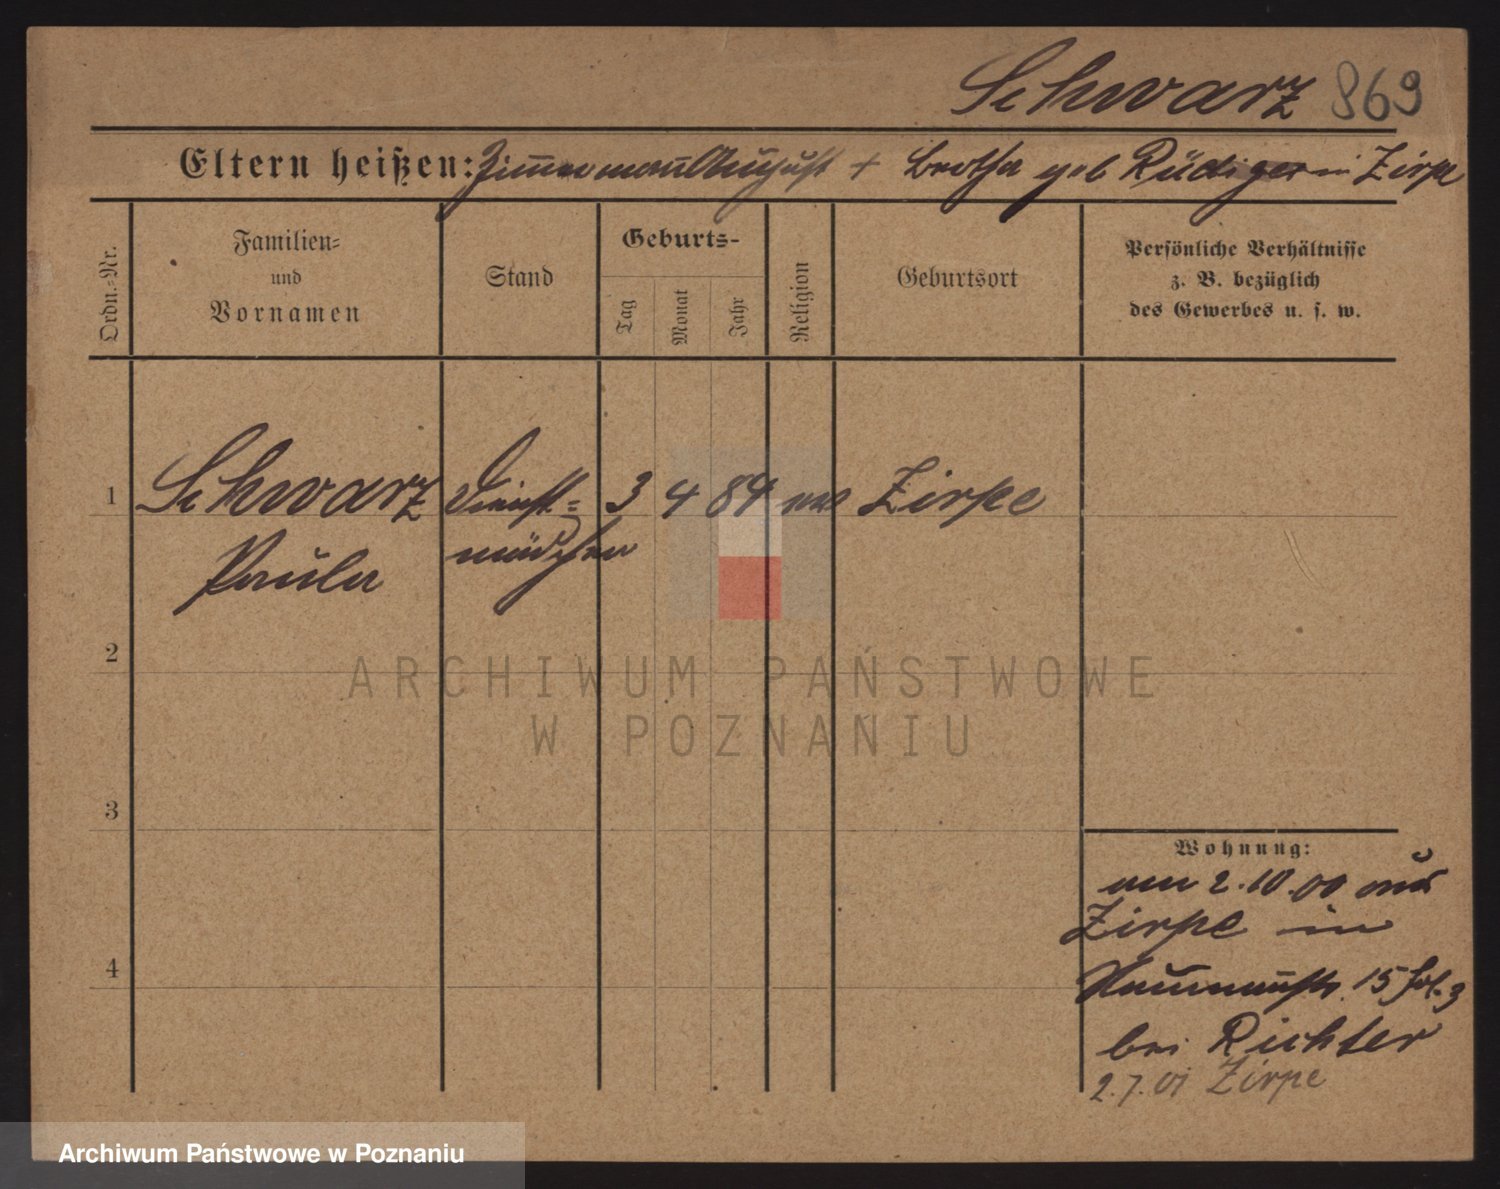 Schwarz 869
Eltern heißen: Zimmermann August + Bertha geb Rüdiger in Zirpe
Ordn.-Nr.
Familien-
und
Vornamen
Stand
Geburts-
Tag
Monat
Jahr
Religion
Geburtsort
Persönliche Verhältnisse
z. B. bezüglich
des Gewerbes u. s. w.
1 Schwarz Dienst= 3 4 84 ev Zirpe
Paula mädchen
2
3
4
Wohnung:
am 2.10.00 aus
Zirpe in
Naumannstr. 15
bei Richter
2.7.01 Zirpe
ARCHIWUM PAŃSTWOWE
W POZNANIU
Archiwum Państwowe w Poznaniu